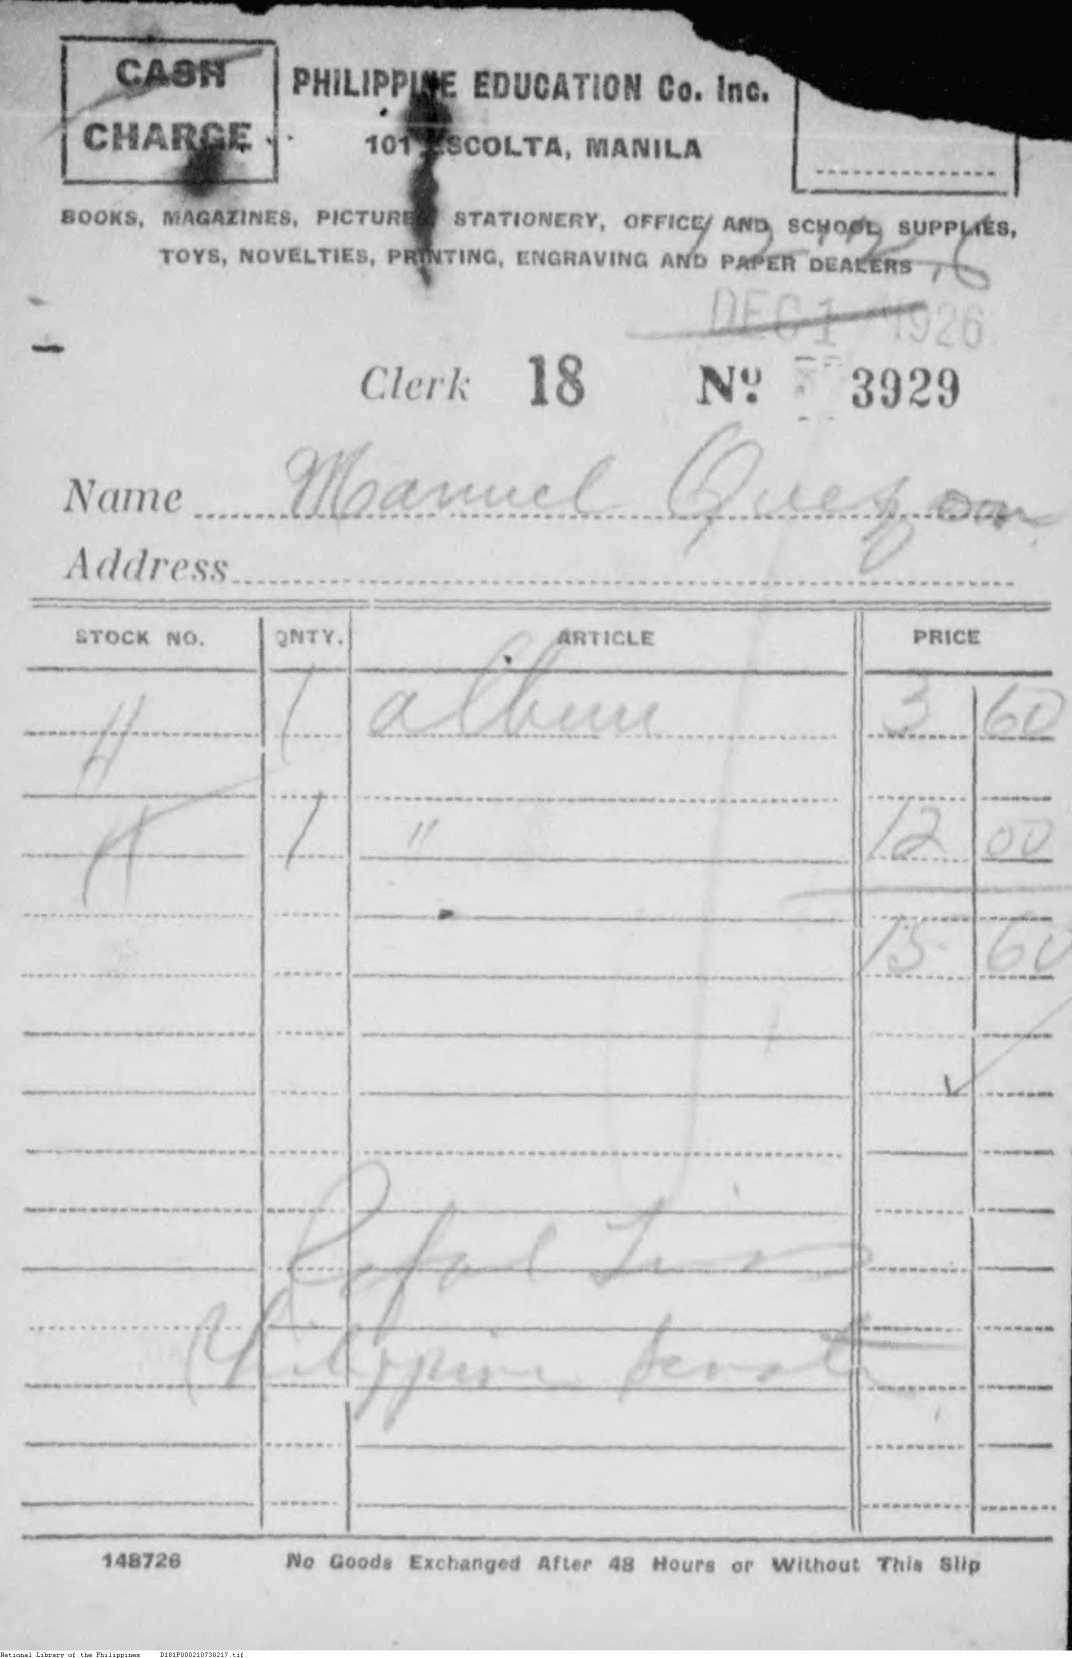 CASH
CHARGE
PHILIPPINE EDUCATION Co. Inc.
101 ESCOLTA, MANILA
BOOKS, MAGAZINES, PICTURES, STATIONERY, OFFICE AND SCHOOL SUPPLIES,
TOYS, NOVELTIES, PRINTING, ENGRAVING AND PAPER DEALERS
DEC 1 1926
Clerk 18 Nº 3929
Name Manuel Quezon
Address
STOCK NO. QNTY. ARTICLE PRICE
H 1 album 3 60
H 1 " 12 00
15 60
Philippine Senate
148726 No Goods Exchanged After 48 Hours or Without This Slip
National Library of the Philippines D181P000210738217.tif